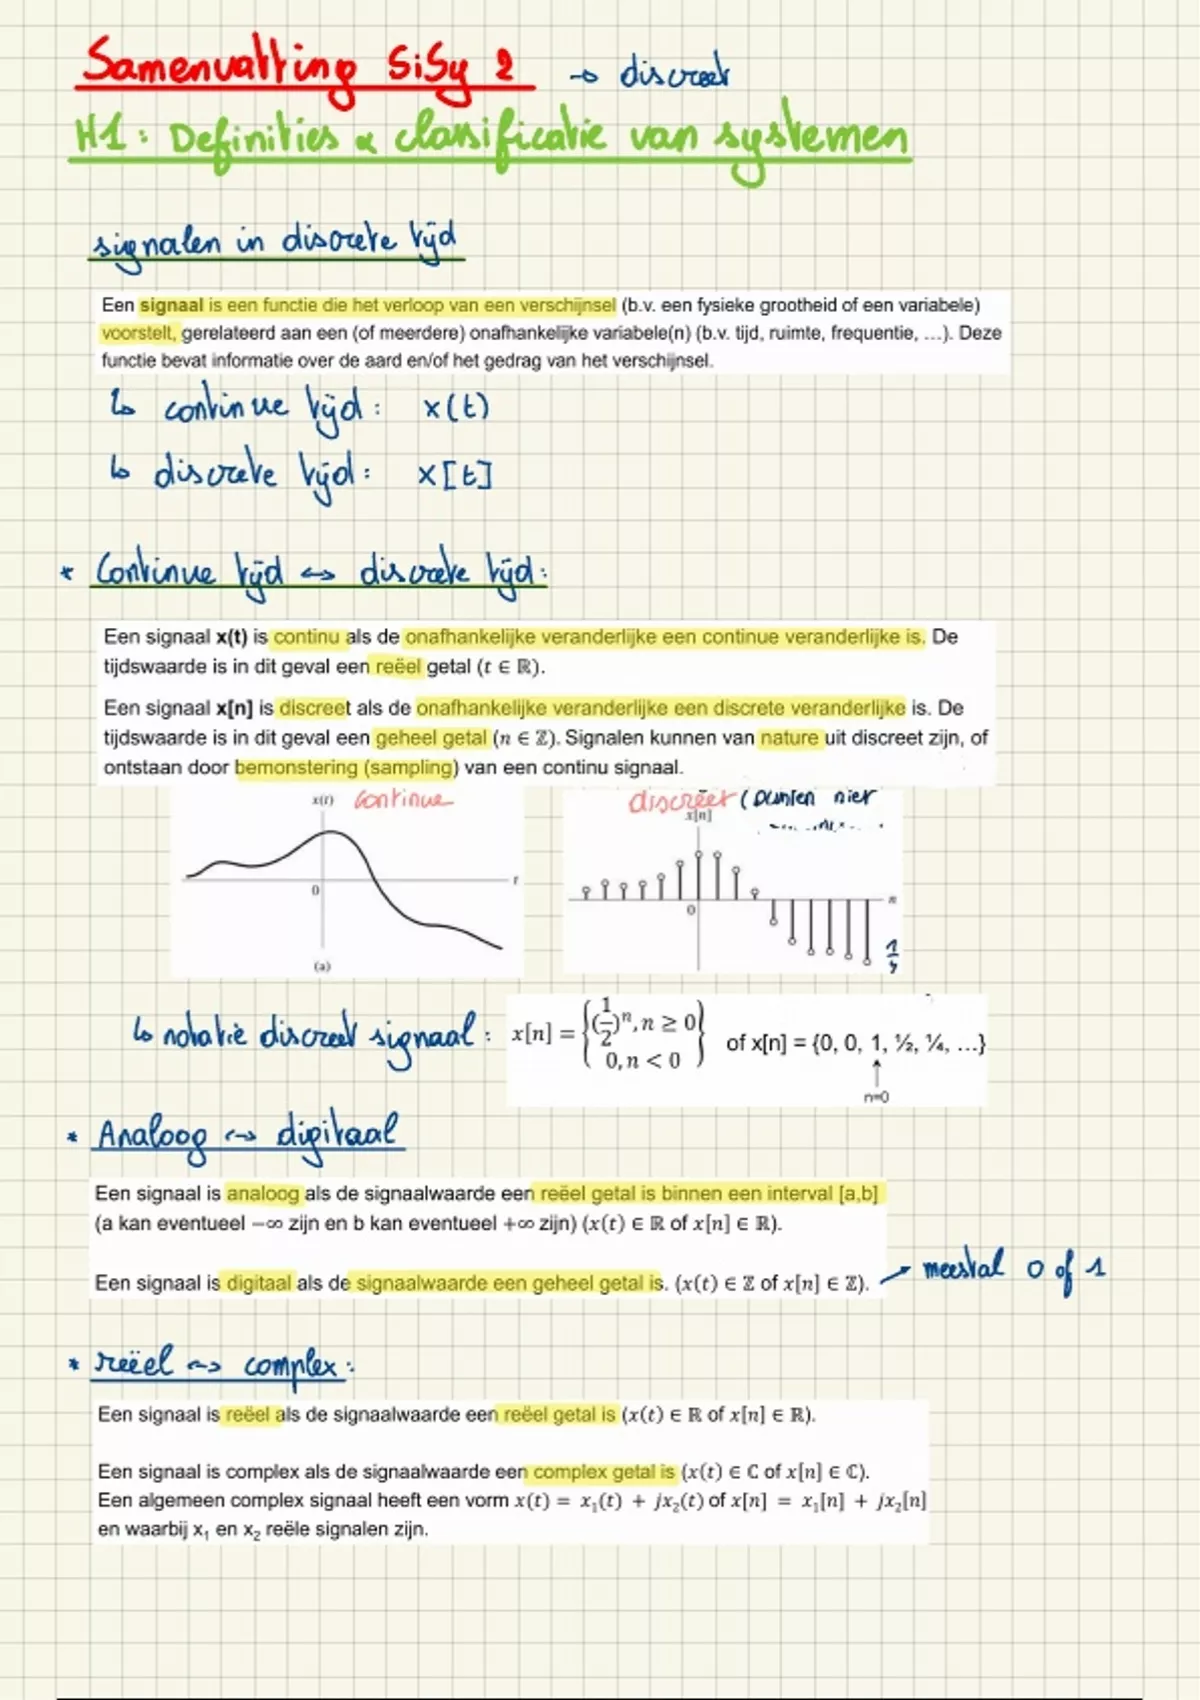 Samenvatting SiSy 2 → discreet
H1: Definities & classificatie van systemen
signalen in discrete tijd
Een signaal is een functie die het verloop van een verschijnsel (b.v. een fysieke grootheid of een variabele)
voorstelt, gerelateerd aan een (of meerdere) onafhankelijke variabele(n) (b.v. tijd, ruimte, frequentie, ...). Deze
functie bevat informatie over de aard en/of het gedrag van het verschijnsel.
↳ continue tijd: x(t)
↳ discrete tijd: x[t]
* Continue tijd ↔ discrete tijd:
Een signaal x(t) is continu als de onafhankelijke veranderlijke een continue veranderlijke is. De
tijdswaarde is in dit geval een reëel getal (t ∈ ℝ).
Een signaal x[n] is discreet als de onafhankelijke veranderlijke een discrete veranderlijke is. De
tijdswaarde is in dit geval een geheel getal (n ∈ ℤ). Signalen kunnen van nature uit discreet zijn, of
ontstaan door bemonstering (sampling) van een continu signaal.
x(t) continue
0
t
(a)
discreet (punten niet
x[n]
0
n
↳ notatie discreet signaal: x[n] = {(1/2)^n, n ≥ 0
0, n < 0} of x[n] = {0, 0, 1, ½, ¼, ...}
↑
n=0
* Analoog ↔ digitaal
Een signaal is analoog als de signaalwaarde een reëel getal is binnen een interval [a,b]
(a kan eventueel −∞ zijn en b kan eventueel +∞ zijn) (x(t) ∈ ℝ of x[n] ∈ ℝ).
Een signaal is digitaal als de signaalwaarde een geheel getal is. (x(t) ∈ ℤ of x[n] ∈ ℤ). → meestal 0 of 1
* reëel ↔ complex:
Een signaal is reëel als de signaalwaarde een reëel getal is (x(t) ∈ ℝ of x[n] ∈ ℝ).
Een signaal is complex als de signaalwaarde een complex getal is (x(t) ∈ ℂ of x[n] ∈ ℂ).
Een algemeen complex signaal heeft een vorm x(t) = x₁(t) + jx₂(t) of x[n] = x₁[n] + jx₂[n]
en waarbij x₁ en x₂ reële signalen zijn.